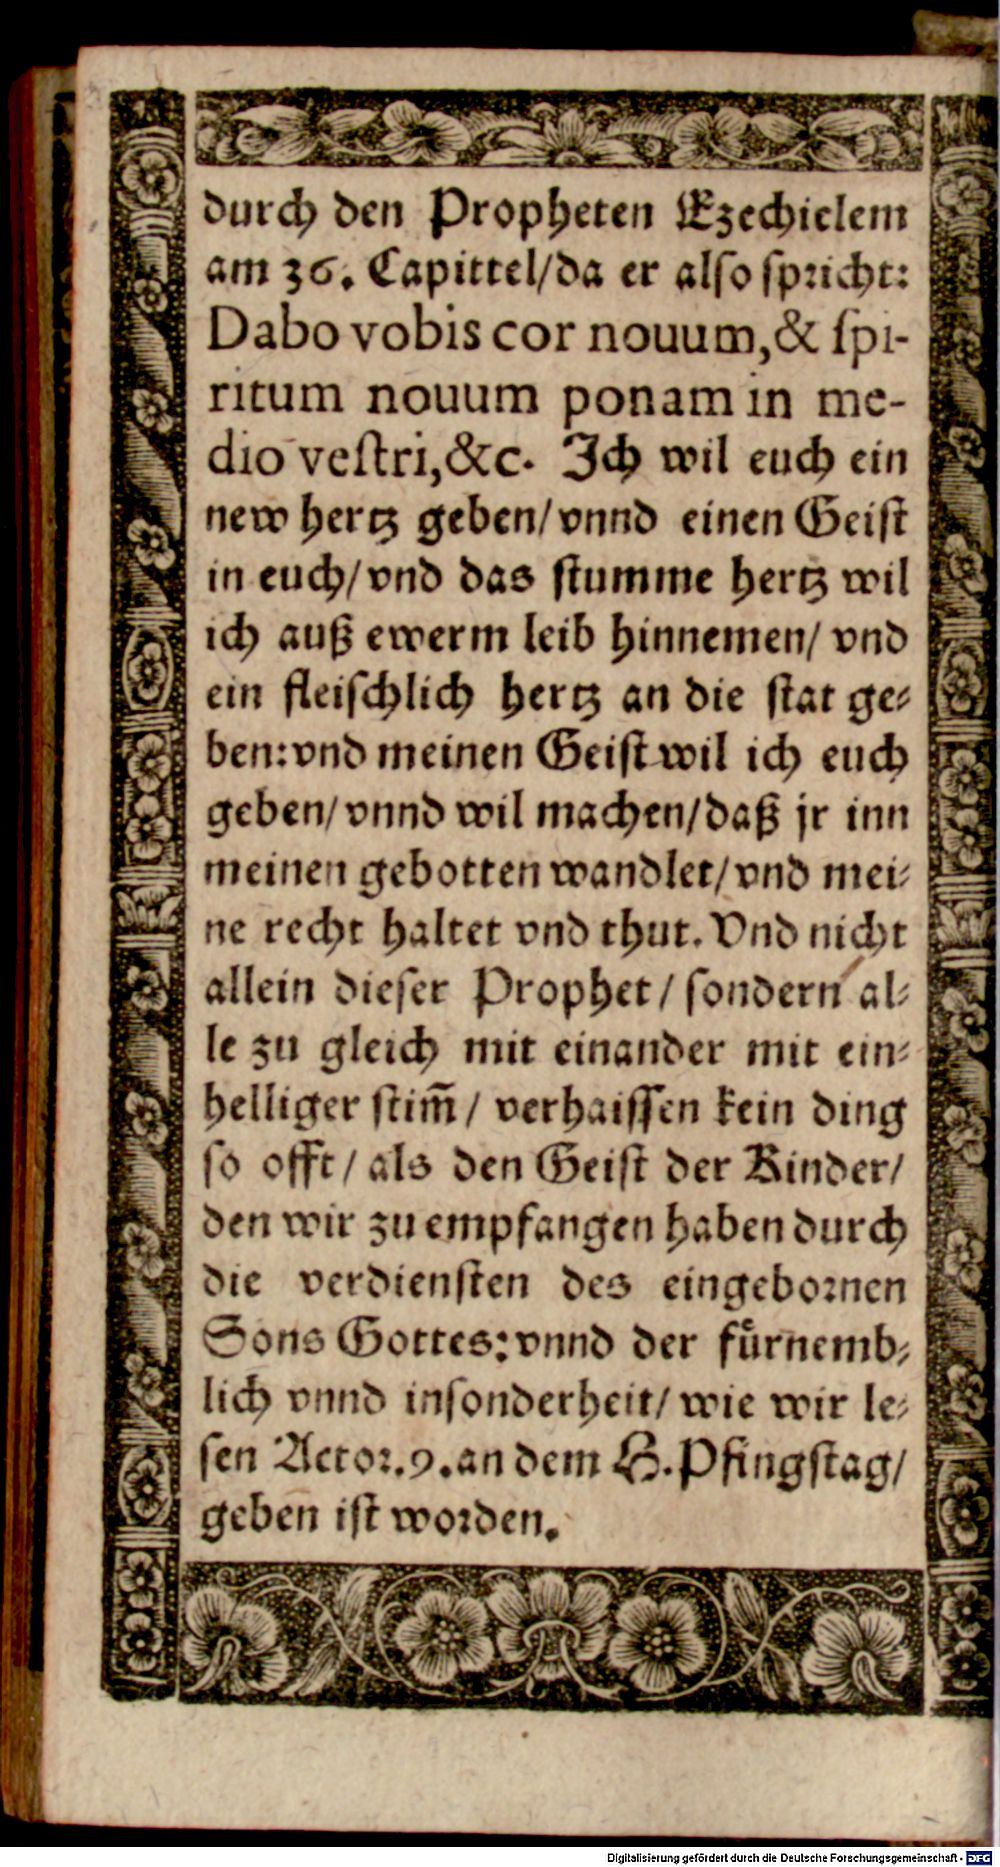 durch den Propheten Ezechielem
am 36. Capittel/da er also spricht:
Dabo vobis cor nouum,& spi-
ritum nouum ponam in me-
dio vestri,&c. Ich wil euch ein
new hertz geben/vnnd einen Geist
in euch/vnd das stumme hertz wil
ich auß ewerm leib hinnemen/ vnd
ein fleischlich hertz an die stat ge-
ben:vnd meinen Geist wil ich euch
geben/vnnd wil machen/daß jr inn
meinen gebotten wandlet/vnd mei-
ne recht haltet vnd thut. Vnd nicht
allein dieser Prophet/sondern al-
le zu gleich mit einander mit ein-
helliger stim̃/ verhaissen kein ding
so offt/als den Geist der Kinder/
den wir zu empfangen haben durch
die verdiensten des eingebornen
Sons Gottes:vnnd der fůrnemb-
lich vnnd insonderheit/wie wir le-
sen Actor.9.an dem H.Pfingstag/
geben ist worden.
Digitalisierung gefördert durch die Deutsche Forschungsgemeinschaft - DFG